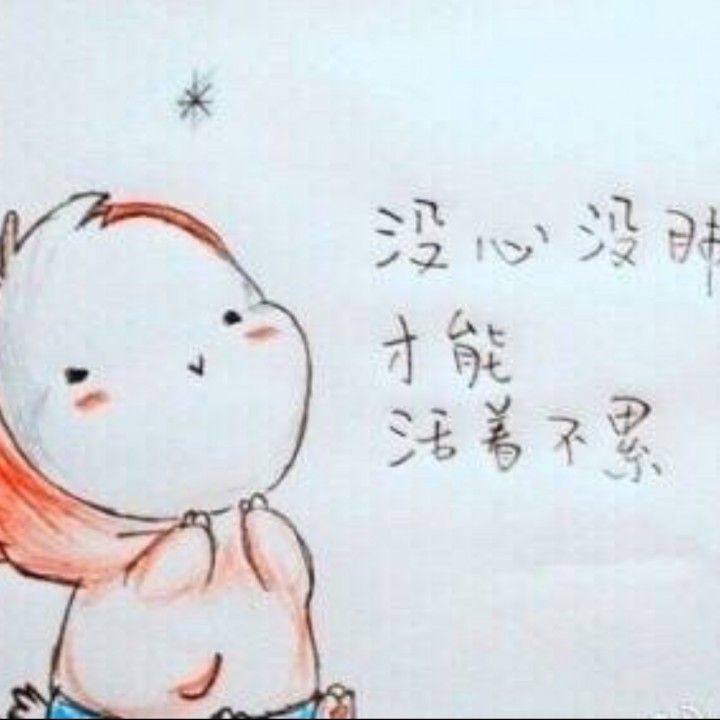 没心没肺
才能
活着不累